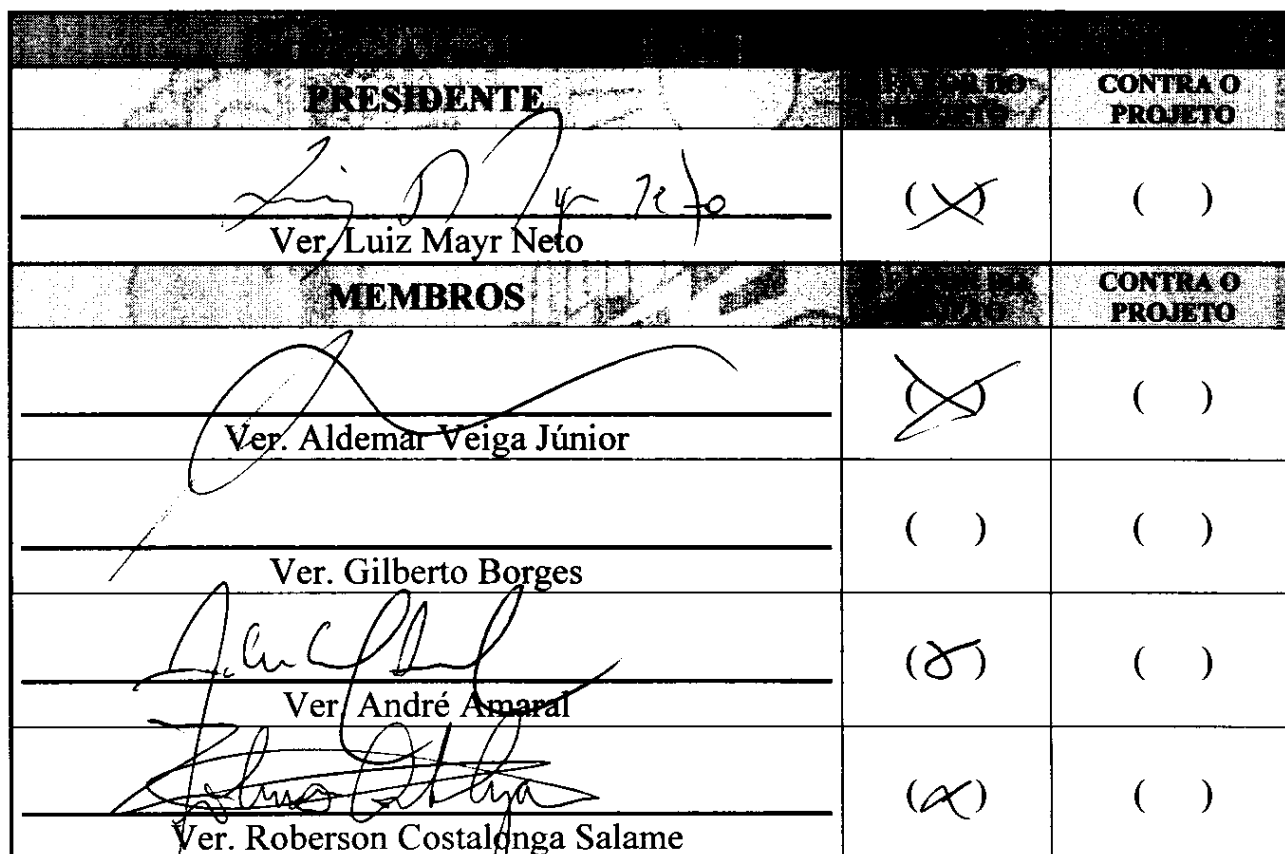 PRESIDENTE
CONTRA O
PROJETO
( X ) ( )
Ver. Luiz Mayr Neto
MEMBROS
CONTRA O
PROJETO
Ver. Aldemar Veiga Júnior
( X ) ( )
Ver. Gilberto Borges
( ) ( )
Ver. André Amaral
( X ) ( )
Ver. Roberson Costalonga Salame
( X ) ( )